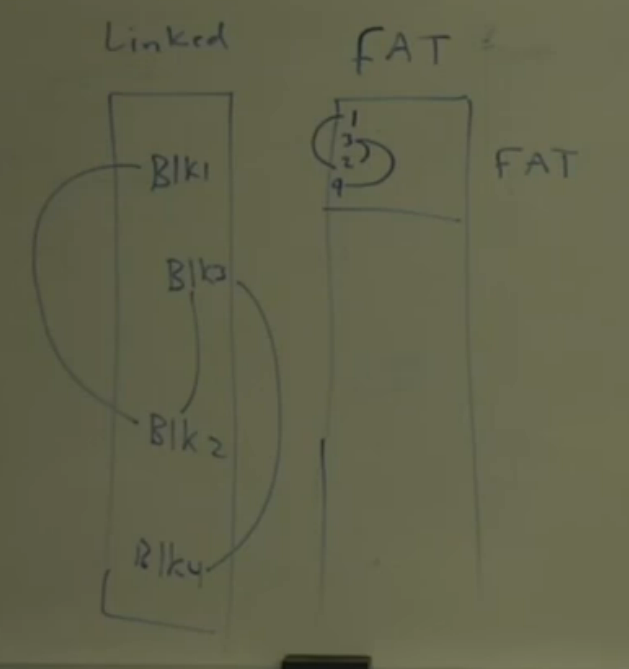 Linked
Blk1
Blk3
Blk2
Blk4
FAT
1
3
2
4
FAT